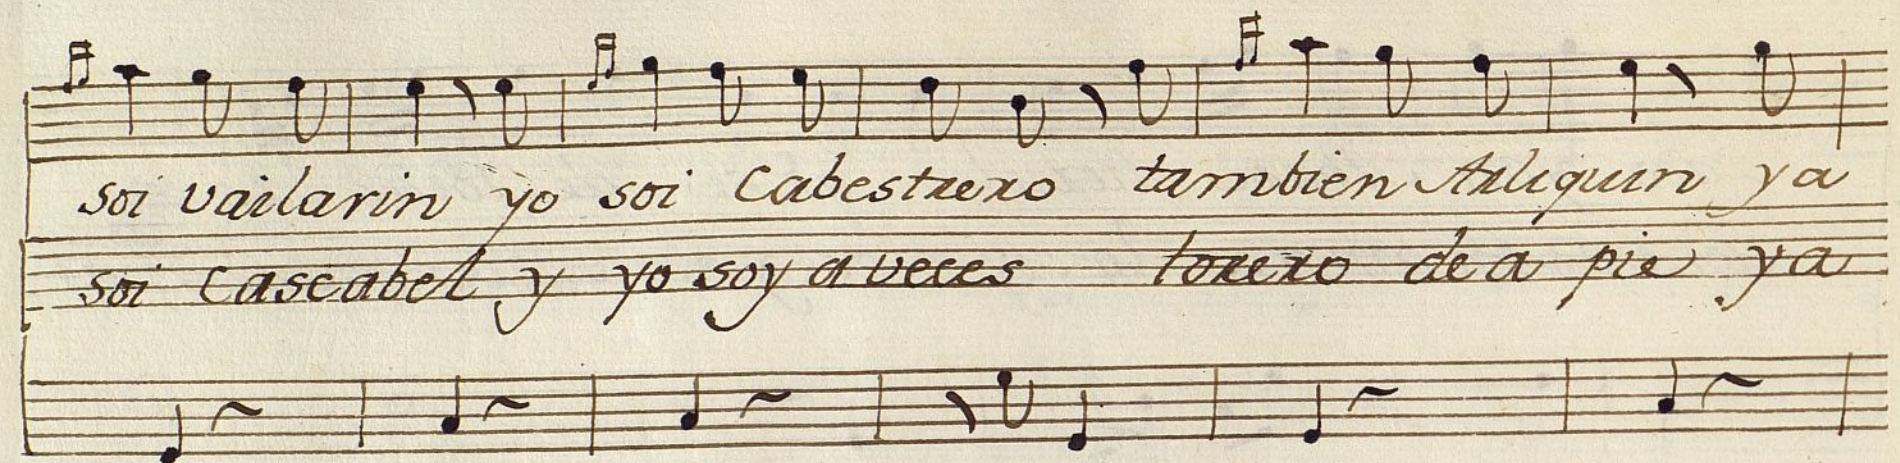 soi vailarin yo soi Cabestrero tambien Arliquin ya
soi Cascabel y yo soy a veces torero de a pie ya